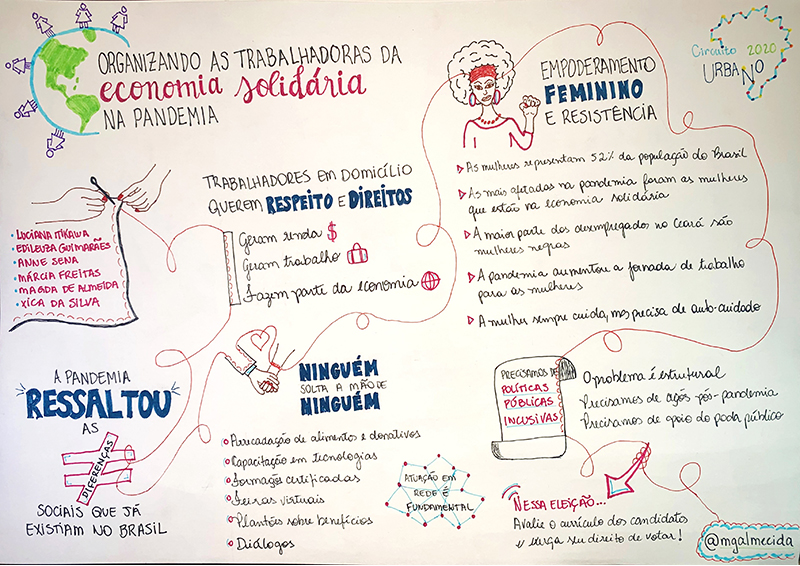 ORGANIZANDO AS TRABALHADORAS DA
economia solidária
NA PANDEMIA
EMPODERAMENTO
FEMININO
E RESISTÊNCIA
Circuito 2020
URBANO
• LUCIANA ITIKAWA
• EDILEUZA GUIMARÃES
• ANNE SENA
• MÁRCIA FREITAS
• MAGDA DE ALMEIDA
• XICA DA SILVA
TRABALHADORES EM DOMICÍLIO
QUEREM RESPEITO E DIREITOS
Geram renda $
Geram trabalho
Fazem parte da economia
As mulheres representam 52% da população do Brasil
As mais afetadas na pandemia foram as mulheres
que estão na economia solidária
A maior parte dos desempregados no Ceará são
mulheres negras
A pandemia aumentou a jornada de trabalho
para as mulheres
A mulher sempre cuida, mas precisa de auto-cuidado
A PANDEMIA
RESSALTOU
AS
DIFERENÇAS
SOCIAIS QUE JÁ
EXISTIAM NO BRASIL
NINGUÉM
SOLTA A MÃO DE
NINGUÉM
Arrecadação de alimentos e donativos
Capacitação em tecnologias
Formações certificadas
Feiras virtuais
Plantões sobre benefícios
Diálogos
ATUAÇÃO EM
REDE É
FUNDAMENTAL
PRECISAMOS DE
POLÍTICAS
PÚBLICAS
INCLUSIVAS
O problema é estrutural
Precisamos de ações pós-pandemia
Precisamos de apoio do poda público
NESSA ELEIÇÃO...
Avalie o currículo dos candidatos
e exerça seu direito de votar!
@mgalmecida